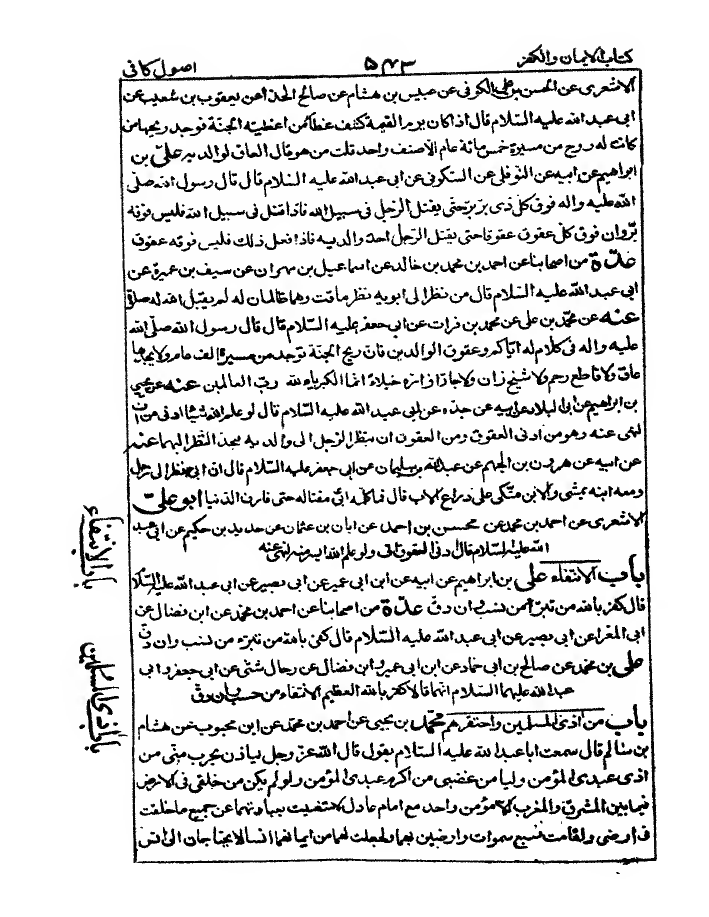 كتاب الايمان والكفر ۵۴۳ اصول كافى
الاشعرى عن الحسن بن على الكوفى عن عبيس بن هشام عن صالح الحذاء عن يعقوب بن شعيب عن
ابى عبد الله عليه السلام قال اذا كان يوم القيمة كشف غطاء من اغطية الجنة فوجد ريحها من
كانت له روح من مسيرة خمس مائة عام الا صنف واحد قلت من هو قال العاق لوالديه على بن
ابراهيم عن ابيه عن النوفلى عن السكونى عن ابى عبد الله عليه السلام قال قال رسول الله صلى
الله عليه واله فوق كل ذى بر بر حتى يقتل الرجل فى سبيل الله فاذا قتل فى سبيل الله فليس فوقه
بر وان فوق كل عقوق عقوقا حتى يقتل الرجل احد والديه فاذا فعل ذلك فليس فوقه عقوق
عدة من اصحابنا عن احمد بن محمد بن خالد عن اسماعيل بن مهران عن سيف بن عميرة عن
ابى عبد الله عليه السلام قال من نظر الى ابويه نظر ماقت وهما ظالمان له لم يقبل الله له صلوة
عنه عن محمد بن على عن محمد بن فرات عن ابى جعفر عليه السلام قال قال رسول الله صلى الله
عليه واله فى كلام له اياكم وعقوق الوالدين فان ريح الجنة توجد من مسيرة الف عام ولا يجدها
عاق ولا قاطع رحم ولا شيخ زان ولا جار ازاره خيلاء انما الكبرياء لله رب العالمين عنه عن يحيى
بن ابراهيم عن ابى البلاد عن ابيه عن جده عن ابى عبد الله عليه السلام قال لو علم الله شيئا ادنى من اف
لنهى عنه وهو من ادنى العقوق ومن العقوق ان ينظر الرجل الى والديه فيحد النظر اليهما عنه
عن ابيه عن هرون بن الجهم عن عبد الله بن سليمان عن ابى جعفر عليه السلام قال ان ابى نظر الى رجل
ومعه ابنه يمشى والابن متكى على ذراع الاب قال فما كلمه ابى مقتا له حتى فارق الدنيا ابو على
الاشعرى عن احمد بن محمد عن محسن بن احمد عن ابان بن عثمان عن حديد بن حكيم عن ابى عبد
الله عليه السلام قال ادنى العقوق اف ولو علم الله ايسر منه لنهى عنه
باب الانتفاء على بن ابراهيم عن ابيه عن ابن ابى عمير عن ابى بصير عن ابى عبد الله عليه السلام
قال كفر بالله من تبرأ من نسب وان دق عدة من اصحابنا عن احمد بن محمد عن ابن فضال عن
ابى المغرا عن ابى بصير عن ابى عبد الله عليه السلام قال كفر بالله من تبرء من نسب وان دق
على بن محمد عن صالح بن ابى حماد عن ابن ابى عمير وابن فضال عن رجال شتى عن ابى جعفر و ابى
عبد الله عليهما السلام انهما قالا كفر بالله العظيم الانتفاء من حسب وان دق
باب من اذى المسلمين واحتقرهم محمد بن يحيى عن احمد بن محمد عن ابن محبوب عن هشام
بن سالم قال سمعت ابا عبد الله عليه السلام يقول قال الله عز وجل لياذن بحرب منى من
اذى عبدى المؤمن وليأمن غضبى من اكرم عبدى المؤمن ولو لم يكن من خلقى فى الارض
فيما بين المشرق والمغرب الا مؤمن واحد مع امام عادل لاستغنيت بعبادتهما عن جميع ما خلقت
فى ارضى ولقامت سبع سموات وارضين بهما ولجعلت لهما من ايمانهما انسا لا يحتاجان الى انس
باب الانتفاء
باب اذى المسلمين